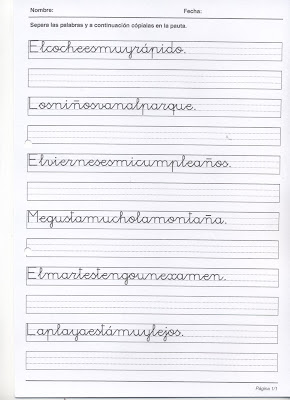 Nombre: Fecha:
Separa las palabras y a continuación cópialas en la pauta.
Elcocheesmuyrápido.
Losniñosvanalparque.
Elviernesesmicumpleaños.
Megustamucholamontaña.
Elmartestengounexamen.
Laplayaestámuylejos.
Página 1/1